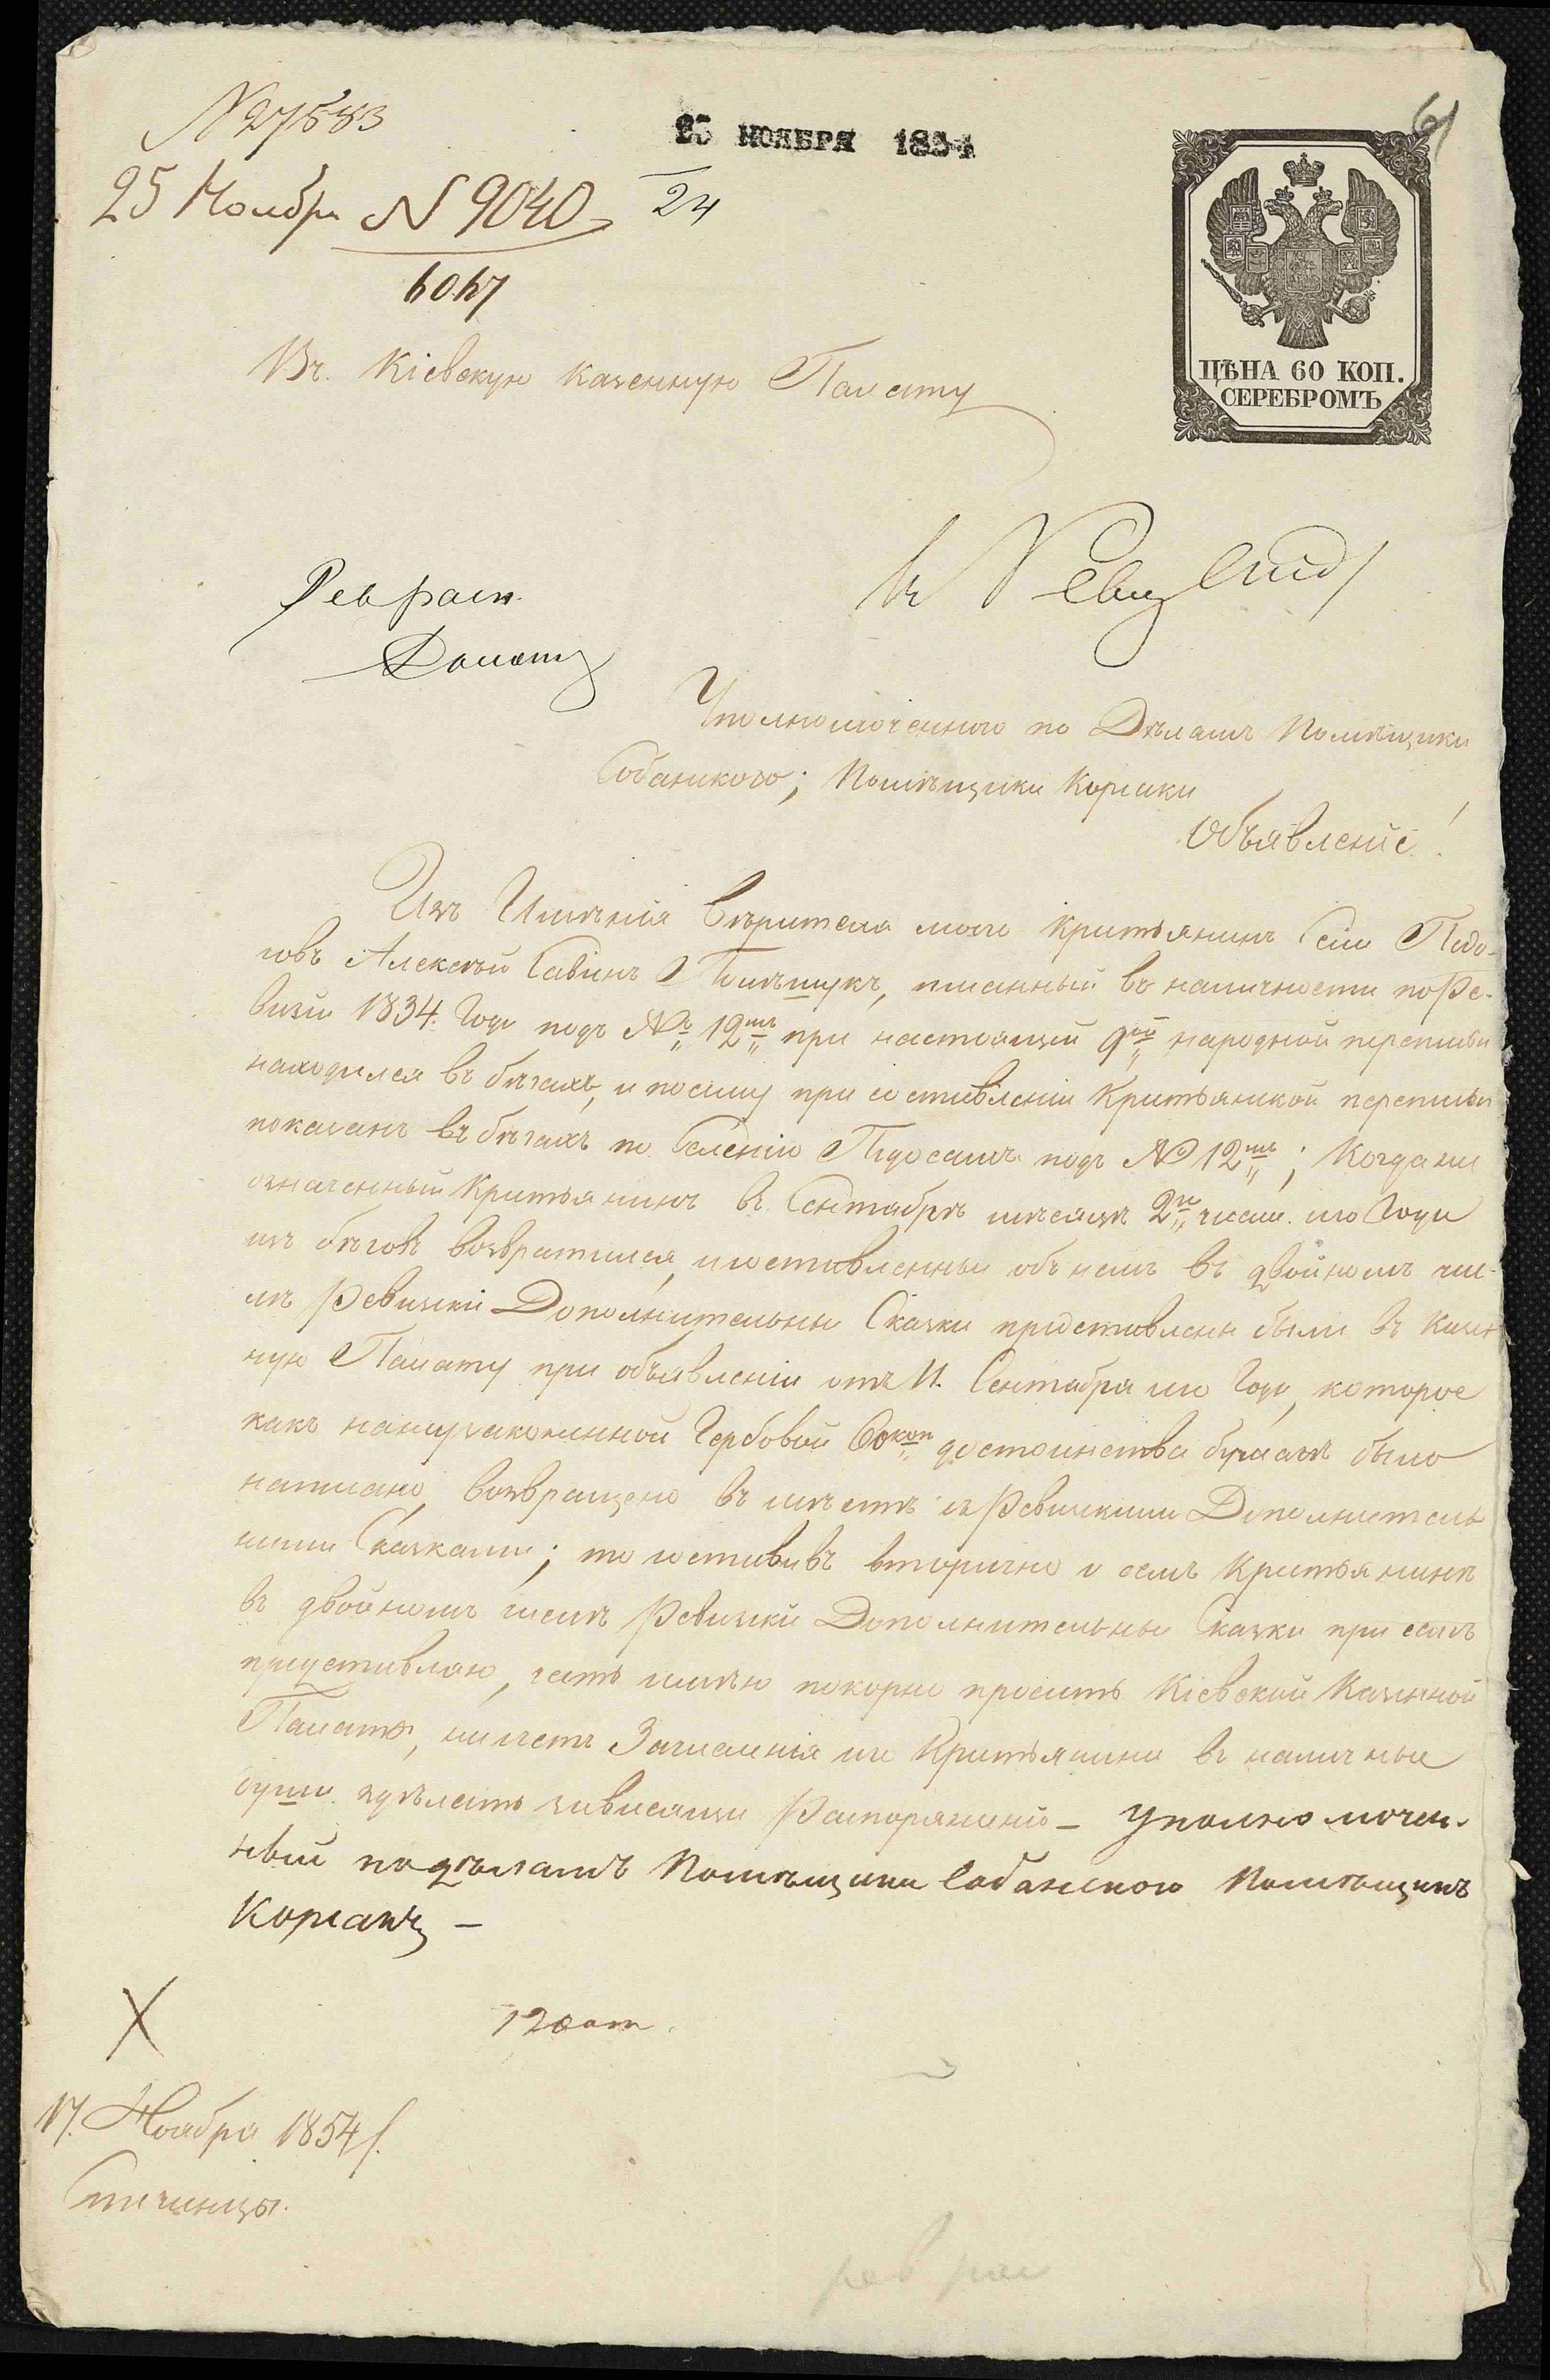 № 27583
25 НОЯБРЯ 1854
25 Ноября № 9040
24
6067
61
ЦѢНА 60 КОП.
СЕРЕБРОМЪ
Въ Кіевскую Казенную Палату
Уполномоченного по Дѣламъ Помѣщика
Собанского; Помѣщика Коржака
Объявленіе!
Изъ Имѣнія вѣрителя моего Крестьянинъ Села
Алексѣй Савинъ писанный въ наличности по Ре-
визіи 1834. Года подъ № 12мъ при настоящей 9ой народной переписи
находился въ бѣгахъ, и посему при составленіи Крестьянской переписи
показанъ въ бѣгахъ по Селенію подъ № 12мъ; Когда же
означенный Крестьянинъ въ Сентябрѣ мѣсяцѣ 2го числ. сего Года
изъ бѣговъ возвратился, и составленные объ немъ въ двойномъ чис-
лѣ Ревизскіе Дополнительные Сказки представлены были въ Казен
ную Палату при объявленіи отъ 11. Сентября сего Года, которое
какъ на неузаконенной Гербовой 60коп достоинства бумагѣ было
написано, возвращено въ мѣстѣ съ Ревизскими Дополнитель
ными Сказками; то составивъ вторично о семъ Крестьянинѣ
въ двойномъ числѣ Ревизскіе Дополнительные Сказки при семъ
представляю, честь имѣю покорно просить Кіевской Казенной
Палаты, на счетъ Зачисленія его Крестьянина въ наличные
души здѣлать зависящее Распоряженіе – Уполномочен-
ный по дѣламъ Помѣщика Собанского Помѣщикъ
Коржакъ –
17. Ноября 1854 г.